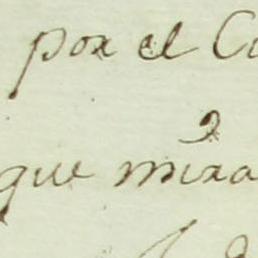 por el
que mira